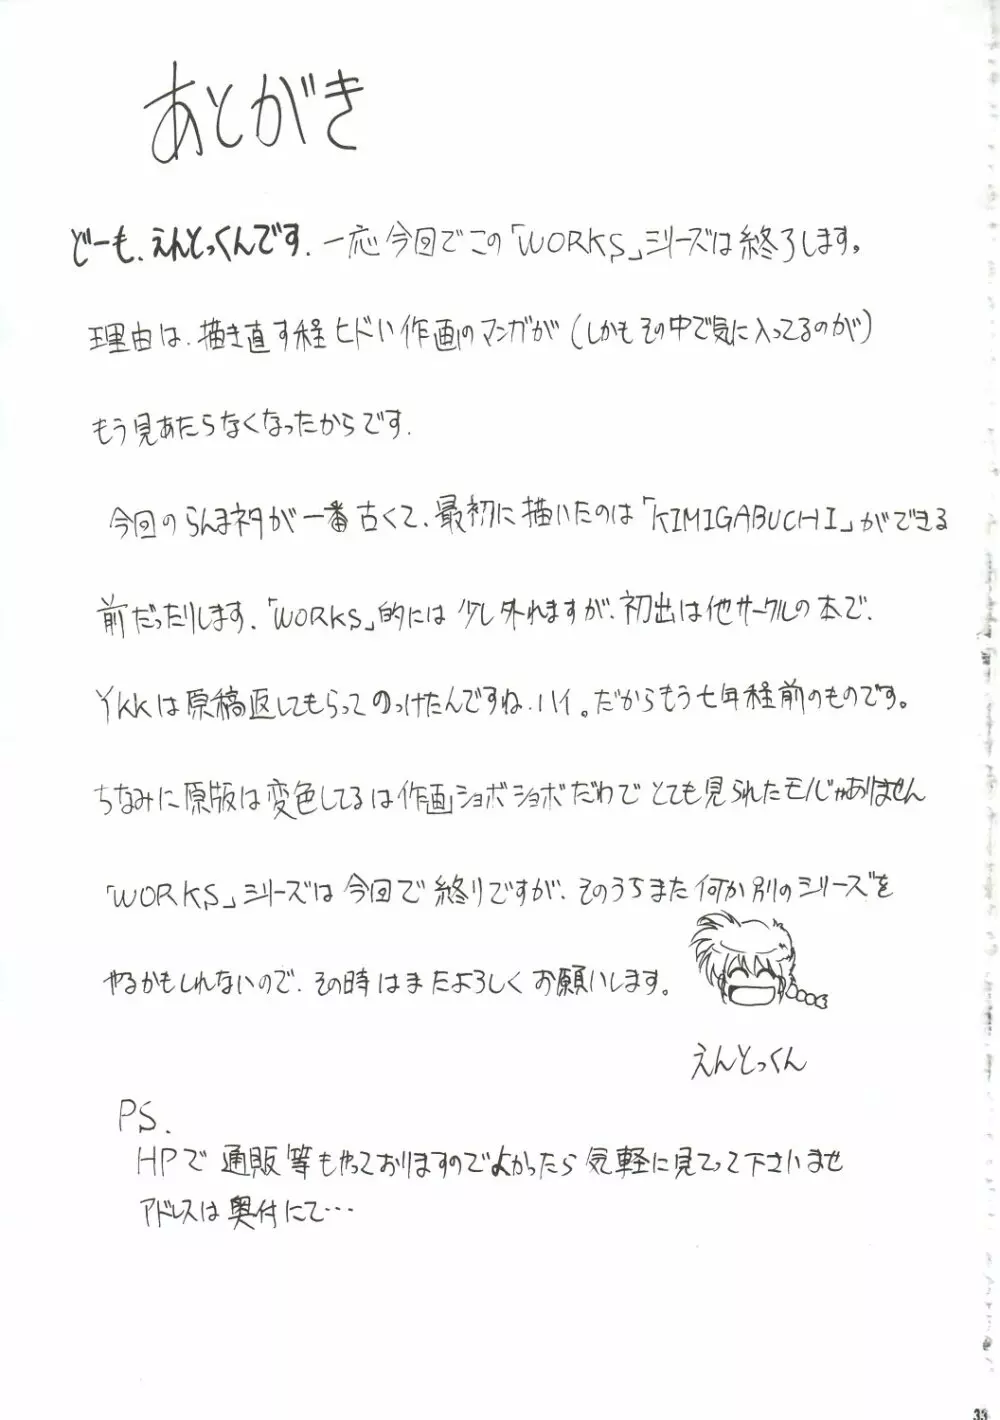 あとがき
どーも、えんとっくんです。一応今回でこの「WORKS」シリーズは終了します。
理由は、描き直す程ヒドい作画のマンガが(しかもその中で気に入ってるのが)
もう見あたらなくなったからです。
今回のらんまネタが一番古くて、最初に描いたのは「KIMIGABUCHI」ができる
前だったりします。「WORKS」的には少し外れますが、初出は他サークルの本で、
Ykkは原稿返してもらってのっけたんですね、ハイ。だからもう七年程前のものです。
ちなみに原版は変色してるは作画ショボショボだわでとても見られたモノじゃありません
「WORKS」シリーズは今回で終りですが、そのうちまた何か別のシリーズを
やるかもしれないので、その時はまたよろしくお願いします。
えんとっくん
PS.
HPで通販等もやっておりますのでよかったら気軽に見てって下さいませ
アドレスは奥付にて…
33